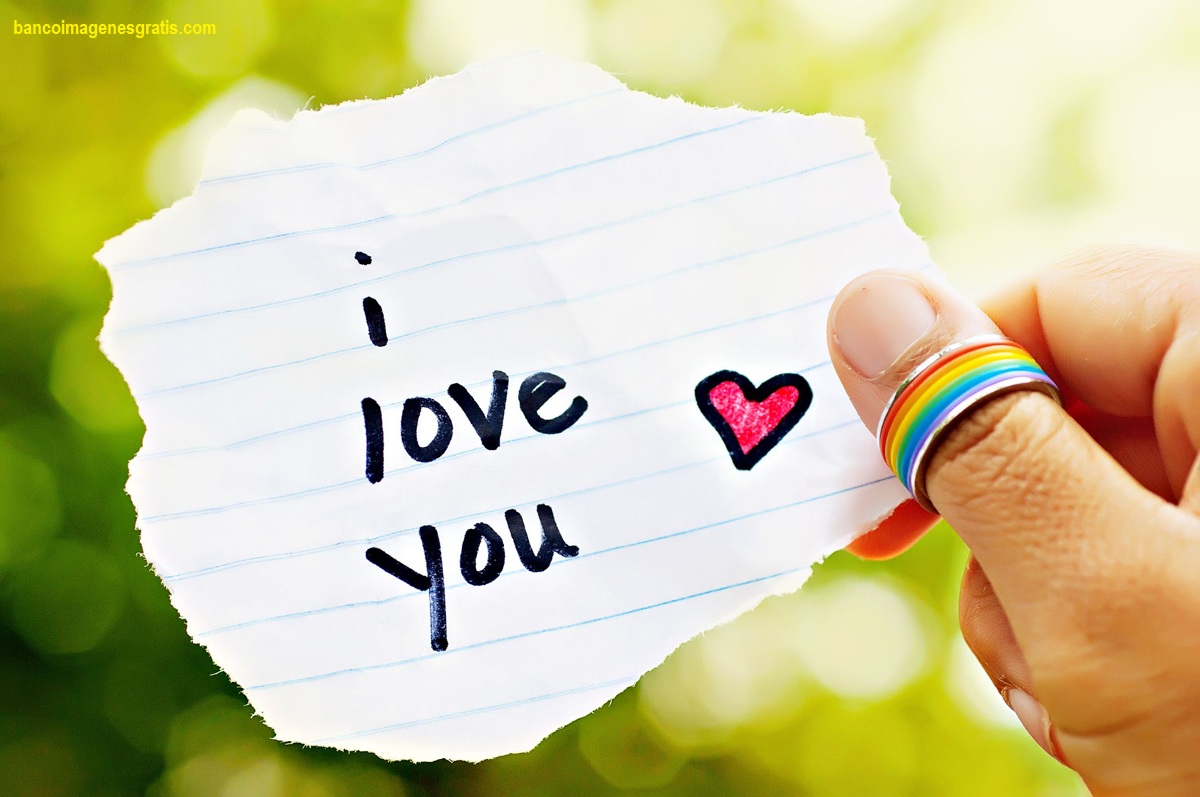 bancoimagenesgratis.com
i
love
you